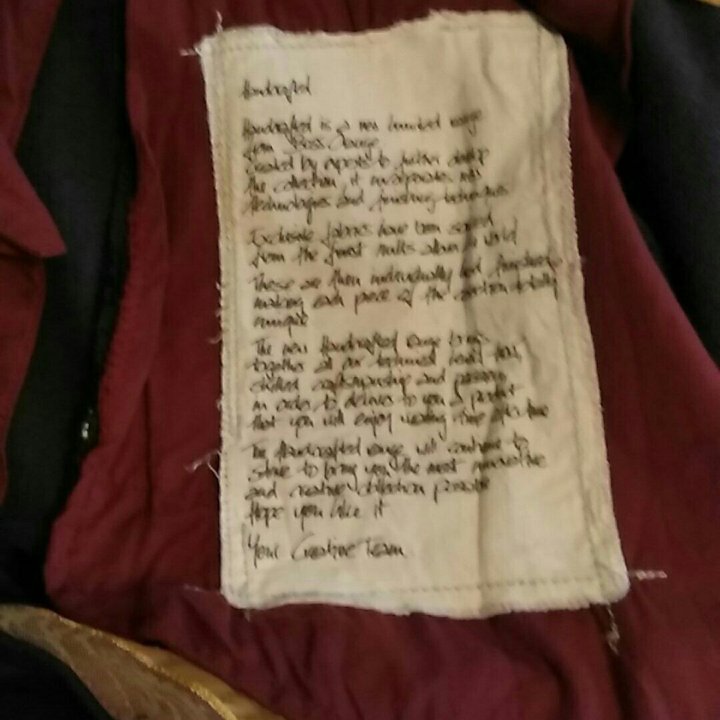 Handcrafted
Handcrafted is a new limited range
from Boss Orange
Created by experts to further develop
the collection it incorporates new
technologies and finishing techniques
Exclusive fabrics have been sourced
from the finest mills in world
These are then individually hand finished
making each piece of the collection totally
unique
The new Handcrafted range brings
together all our
skilled craftsmanship and passion
in order to deliver to you a product
that you will enjoy wearing time after time
The Handcrafted range will continue to
strive to bring you the most innovative
and creative collection possible
Hope you like it
Your Creative Team